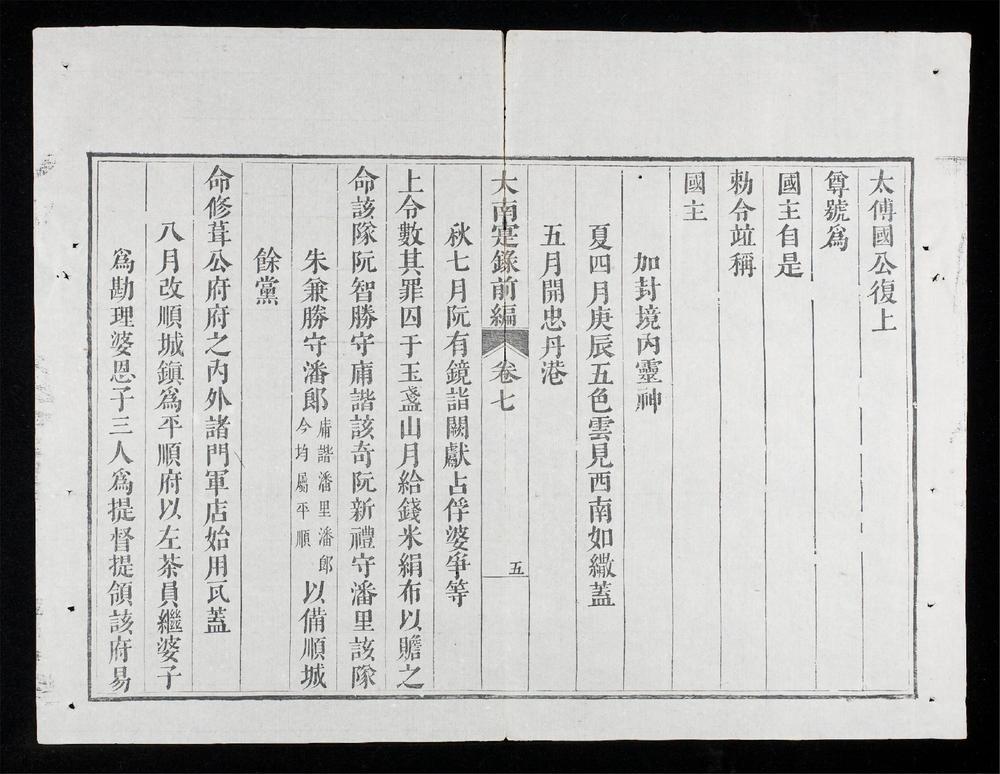 太傅國公復上
尊號爲
國主自是
勅令竝稱
國主
加封境內靈神
夏四月庚辰五色雲見西南如繖蓋
五月開忠丹港
大南寔錄前編 卷七 五
秋七月阮有鏡詣闕獻占俘婆爭等
上令數其罪囚于玉盞山月給錢米絹布以贍之
命該隊阮智勝守庯諧該奇阮新禮守潘里該隊
朱兼勝守潘郎庯諧潘里潘郎今均屬平順以備順城
餘黨
命修葺公府府之內外諸門軍店始用瓦蓋
八月改順城鎮爲平順府以左茶員繼婆子
爲勘理婆恩子三人爲提督提領該府易